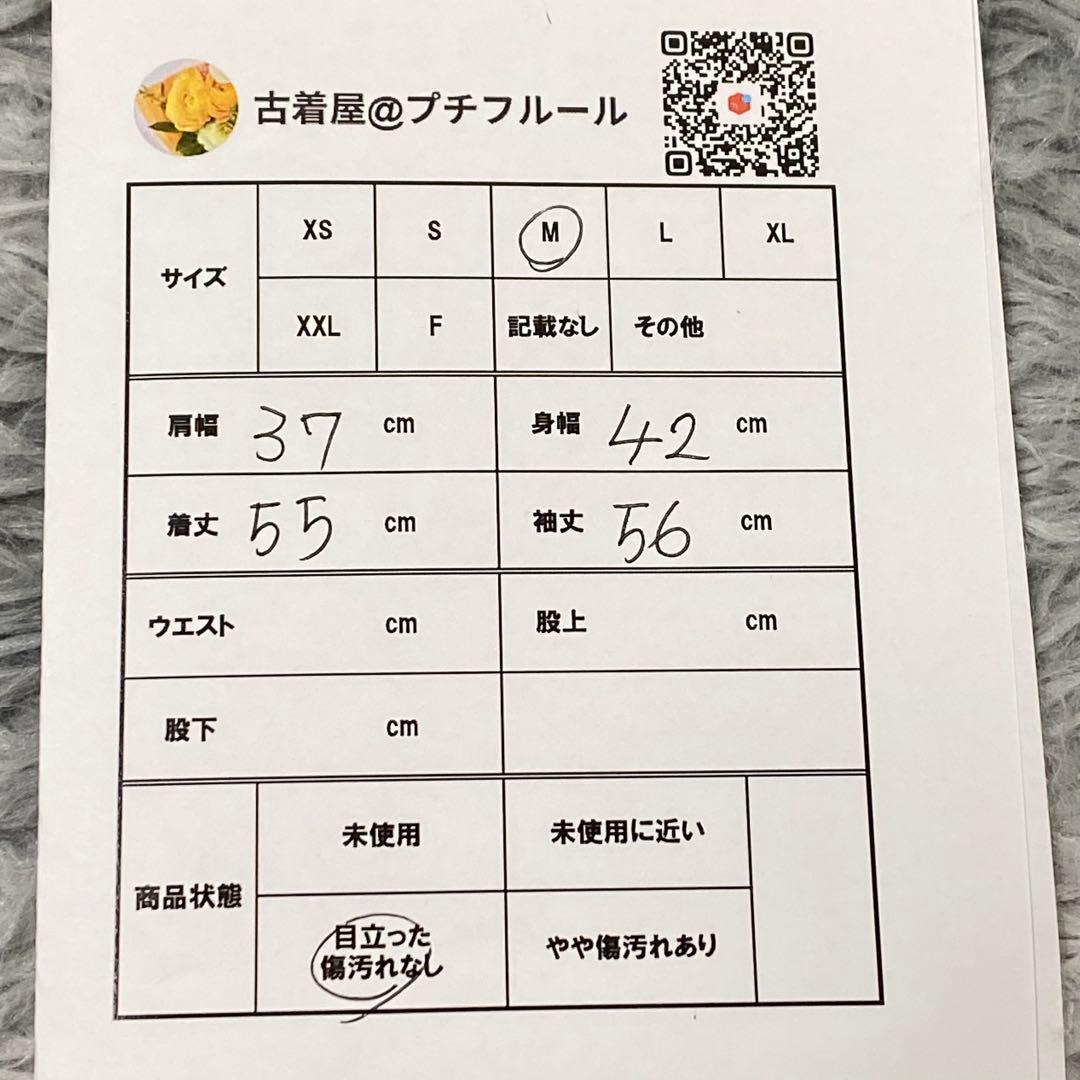 古着屋@プチフルール
サイズ XS S M L XL
XXL F 記載なし その他
肩幅 37 cm 身幅 42 cm
着丈 55 cm 袖丈 56 cm
ウエスト cm 股上 cm
股下 cm
商品状態 未使用 未使用に近い
目立った
傷汚れなし やや傷汚れあり